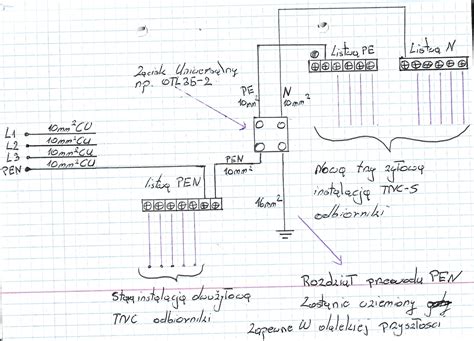 Listwa PE
Listwa N
Zacisk Uniwersalny
np. OTL35-2
PE
10mm²
N
10mm²
L1
10mm² CU
L2
10mm² CU
L3
10mm² CU
PEN
10mm² CU
PEN
10mm²
listwa PEN
16mm²
Nową trzy żyłową
instalacją TNC-S
odbiorniki
Stara instalacja dwużyłowa
TNC odbiorniki
Rozdział przewodu PEN
Zostanie uziemiony
Zapewne W dalekiej przyszłości